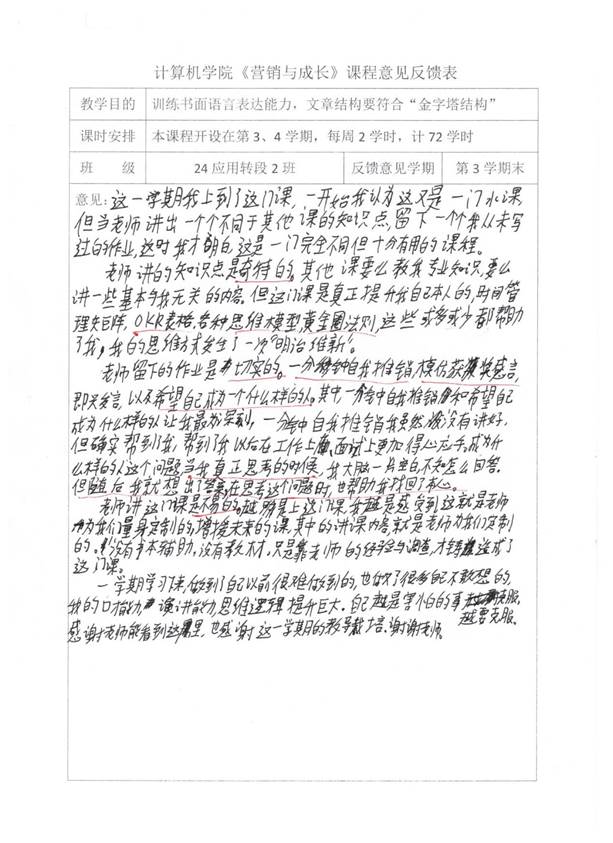 计算机学院《营销与成长》课程意见反馈表
教学目的 训练书面语言表达能力，文章结构要符合“金字塔结构”
课时安排 本课程开设在第3、4学期，每周2学时，计72学时
班 级 24应用转段2班 反馈意见学期 第3学期末
意见：这一学期我上到了这门课，一开始我认为这又是一门水课，
但当老师讲出一个个不同于其他课的知识点，留下一个个我从未写
过的作业，这时我才明白，这是一门完全不同但十分有用的课程。
老师讲的知识点是奇特的。其他课要么教我专业知识，要么
讲一些基本与我无关的内容。但这门课是真正提升我自己本人的，时间管
理矩阵，OKR表格，各种思维模型，黄金圈法则，这些或多或少都帮助
了我，我的思维方式发生了一次“明治维新”。
老师留下的作业是切实的。一分钟自我推销，模仿获奖感言，
即兴发言，以及希望自己成为一个什么样的人。其中一分钟自我推销和希望自己
成为什么样的人让我最为深刻，一分钟自我推销我虽然没有讲好，
但确实帮到了我，帮到了我以后在工作上，面试上更加得心应手。成为什
么样的人这个问题，当我真正思考的时候，我大脑一片空白不知怎么回答。
但随后我就想出了答案，在思考这个问题时，也帮助我找回了本心。
老师讲这门课是不易的。越是上这门课，我越是感受到这就是老师
为我们量身定制的，增援未来的课，其中的讲课内容就是老师为我们定制
的。没有书本辅助，没有教材，只是靠老师的经验与调查，才造成了
这门课。
一学期学习下来，做到了自己以前很难做到的，也做了很多自己不敢想的，
我的口才能力，演讲能力，思维逻辑提升巨大。自己越是害怕的事越要克服。
感谢老师能看到这里，也感谢这一学期的教导栽培。谢谢老师。